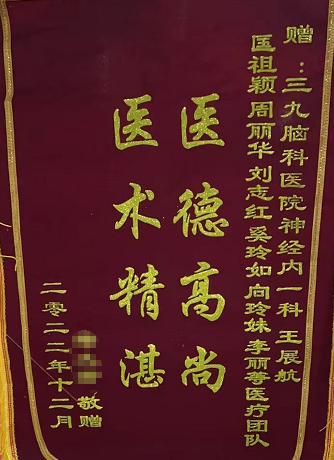 赠：三九脑科医院神经内一科王展航
匡祖颖周丽华刘志红奚玲如向玲妹李丽等医疗团队
医德高尚
医术精湛
敬赠
二零二二年十二月